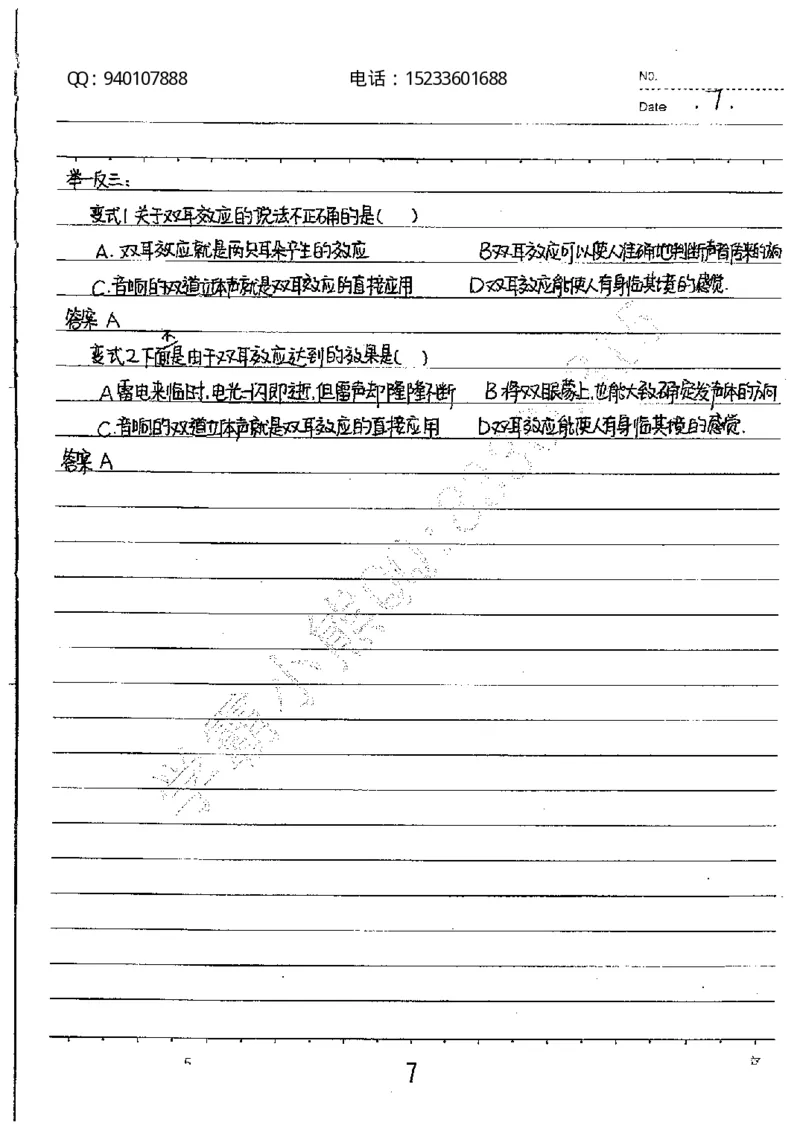 QQ：940107888 电话：15233601688 No.
Date . 7 .
举一反三：
变式1 关于双耳效应的说法不正确的是（ ）
A. 双耳效应就是两只耳朵产生的效应 B双耳效应可以使人准确地判断声音传来的方向
C.音响的双道立体声就是双耳效应的直接应用 D双耳效应能使人有身临其境的感觉.
答案 A
变式2 下面不是由于双耳效应达到的效果是（ ）
A雷电来临时,电光一闪即逝,但雷声却隆隆不断 B 将双眼蒙上,也能大致确定发声体的方向
C.音响的双道立体声就是双耳效应的直接应用 D双耳效应能使人有身临其境的感觉.
答案 A
学霸小熊QQ:
5
7